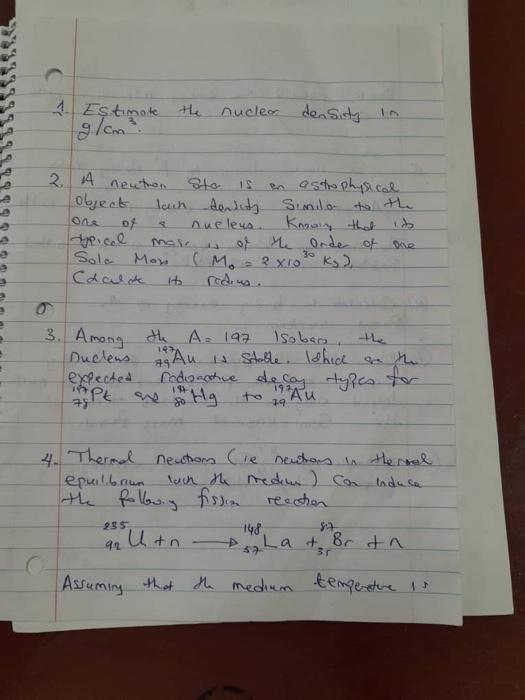 1. Estimate the nuclear density in
g/cm³.
2. A neutron star is an astrophysical
object with density similar to the
one of a nucleus. Knowing that its
typical mass is of the order of one
Solar Mass (M₀ = 2 x10³⁰ Kg),
Calculate its radius.
3. Among the A = 197 Isobars, the
nucleus ¹⁹⁷₇₉Au is stable. Which are the
expected radioactive decay types for
¹⁹⁷₇₈Pt and ¹⁹⁷₈₀Hg to ¹⁹⁷₇₉Au
4. Thermal neutrons (ie neutrons in thermal
equilibrium with the medium) can induce
the following fission reaction
²³⁵₉₂U + n → ¹⁴⁸₅₇La + ⁸⁷₃₅Br + n
Assuming that the medium temperature is